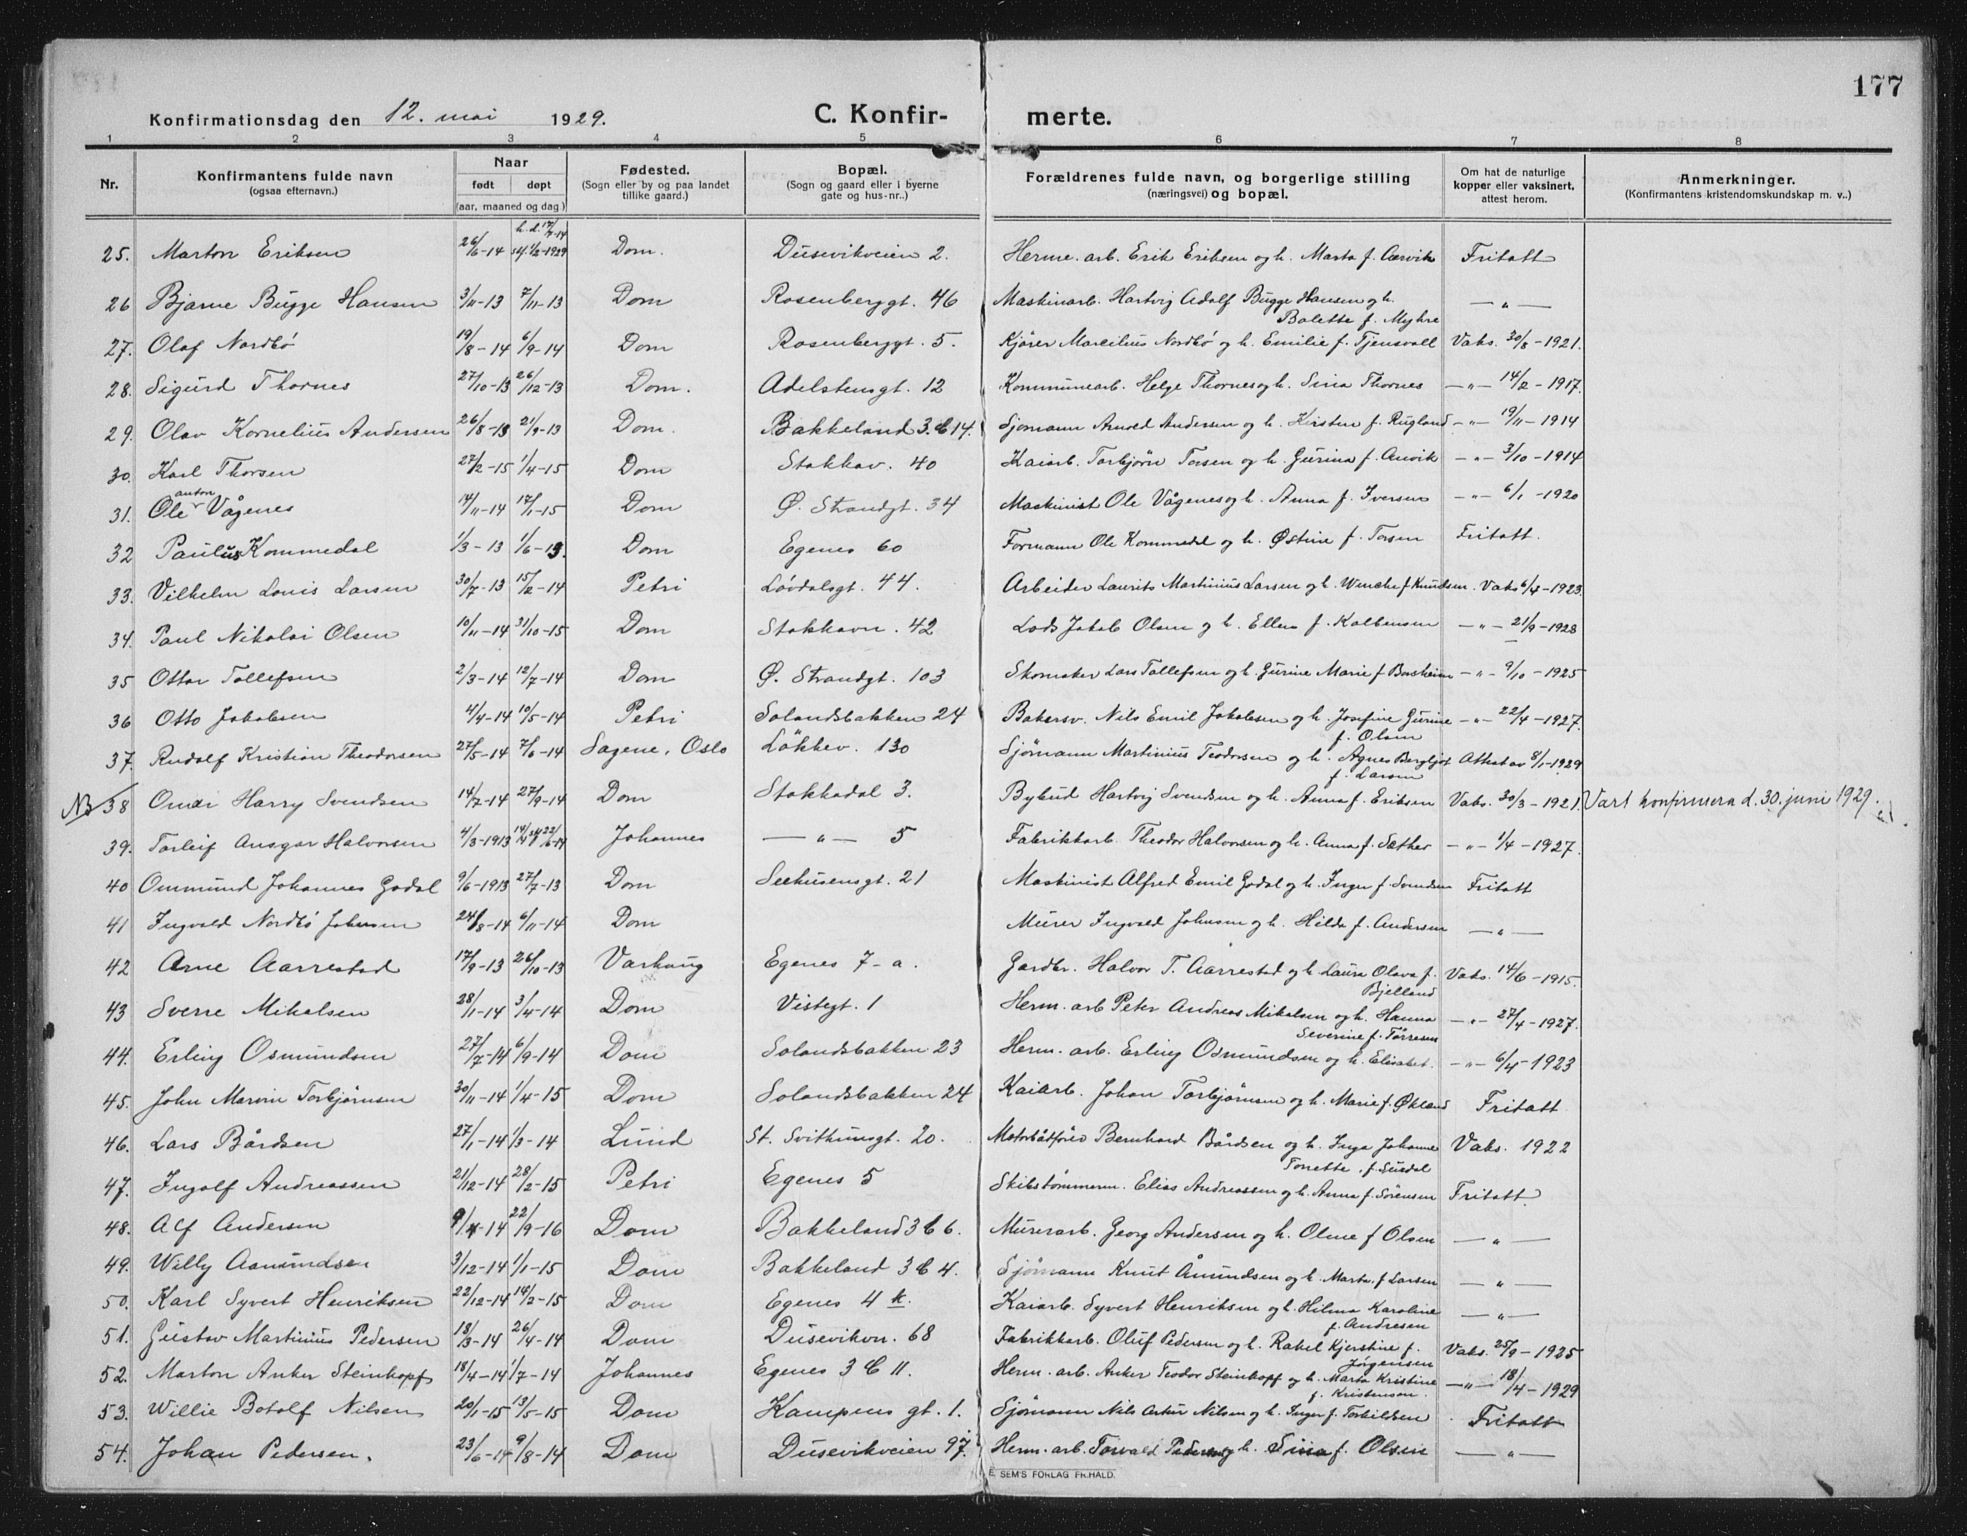 177
Konfirmationsdag den 12. mai 1929. C. Konfirmerte.
1 2 3 4 5 6 7 8
Nr. Konfirmantens fulde navn (ogsaa efternavn.) Naar født døpt (aar, maaned og dag) Fødested. (Sogn eller by og paa landet tillike gaard.) Bopæl. (Sogn og gaard eller i byerne gate og hus-nr..) Forældrenes fulde navn, og borgerlige stilling (næringsvei) og bopæl. Om hat de naturlige kopper eller vaksinert, attest herom. Anmerkninger. (Konfirmantens kristendomskundskap m. v..)
25. Marton Eriksen 26/6-14 h.d. 17/7-14 Dom. Dusevikveien 2. Herme. arb. Erik Eriksen og h. Marta f. Aarvik Fritatt
26 Bjarne Bugge Hansen 3/11-13 7/11-13 Dom Rosenberggt. 46 Maskinarb. Hartvig Adolf Bugge Hansen og h. Bolette f. Myhre — " —
27. Olaf Nordbö 19/8-14 6/9-14 Dom Rosenberggt. 5. Kjörer Marcelius Nordbö og h. Emilie f. Tjensvoll Vaks. 30/8-1921.
28. Sigurd Thornes 27/10-13 26/12-13 Dom. Adelstensgt. 12 Kommunearb. Helge Thornes og h. Sina Thornes — " — 14/2-1917.
29. Olav Kornelius Andersen 26/8-13 21/9-13 Dom. Bakkeland 3.b 14. Sjömann Arnold Andersen og h. Kirsten f. Rugland — " — 19/11-1914
30. Karl Thorsen 27/2-15 1/4-15 Dom Stokkav. 40 Kaiarb. Torbjörn Torsen og h. Gurina f. Auvik — " — 3/10-1914
31. Ole anton Vågenes 14/11-14 17/1-15 Dom Ø. Strandgt. 34 Maskinist Ole Vågenes og h. Anna f. Iversen — " — 6/1-1920
32 Paulus Kommedal 1/3-13 1/6-13. Dom Egenes 60 Formann Ole Kommedal og h. Østine f. Torsen Fritatt.
33. Vilhelm Louis Larsen 30/7-13 15/2-14 Petri Lövdalsgt. 44. Arbeider Laurits Martinius Larsen og h. Wenche f. Knudsen. Vaks 6/4-1923.
34. Paul Nikolai Olsen 10/11-14 31/10-15 Dom Stokkavn. 42 Lods Jakob Olsen og h. Ellen f. Kolbensen — " — 21/9-1928
35 Ottar Tollefsen 2/3-14 12/7-14 Dom Ø. Strandgt. 103 Skomaker Lars Tollefsen og h. Gurine Marie f. Borsheim — " — 9/10-1925
36 Otto Jakobsen 4/4-14 10/5-14 Petri Solandsbakken 24 Bakersv. Nils Emil Jakobsen og h. Josefine Gurine f. Olsen — " — 22/4-1927.
37. Rudolf Kristian Theodorsen 27/5-14 7/6-14 Sagene, Oslo Lökkev. 130 Sjömann Martinius Teodorsen og h. Agnes Bergljot f. Larsen Attest av 8/1-1929
NB 38 Omar Harry Svendsen 14/7-14 27/9-14 Dom Stokkadal 3. Bybud Hartvig Svendsen og h. Anna f. Eriksen Vaks. 30/3-1921. Vart konfirmera d. 30. juni 1929.
39. Torleif Ansgar Halvorsen 4/3-1913 Johannes — " — 5 Fabrikkarb. Theodor Halvorsen og h. Anna f. Sæther — " — 1/4-1927.
40 Ommund Johannes Godal 9/6-1913 27/7-13 Dom Seehusensgt. 21 Maskinist Alfred Emil Godal og h. Inger f. Svendsen Fritatt
41 Ingvald Nordbö Johnsen 24/8-14 6/11-14 Dom Murer Ingvald Johnsen og h. Hilda f. Andersen — " —
42 Arne Aarrestad 17/9-13 26/10-13 Varhaug Egenes 7-a. Gardbr. Halvor T. Aarrestad og h. Laura Olava f. Bjelland Vaks. 14/6-1915.
43 Sverre Mikalsen 28/1-14 3/4-14 Dom Vistegt. 1 Herm. arb Peter Andreas Mikalsen og h. Hanna Severine f. Törresen — " — 27/4-1927.
44. Erling Osmundsen 27/7-14 6/9-14 Dom Solandsbakken 23 Herm. arb. Erling Osmundsen og h. Elisabet. — " — 6/4-1923
45. John Marvin Torbjörnsen 30/11-14 1/4-15 Dom Solandsbakken 24 Kaiarb. Johan Torbjörnsen og h. Marie f. Økland Fritatt
46. Lars Bårdsen 27/1-14 1/3-14 Lund St. Svithunsgt. 20. Motorbåtförer Bernhard Bårdsen og h. Inga Johanne Tonette f. Surdal Vaks. 1922
47. Ingolf Andreassen 21/12-14 28/2-15 Petri Egenes 5 Skibstömmerm. Elias Andreassen og h. Anna f. Sörensen Fritatt
48. Alf Andersen 9/11-14 22/9-16 Dom Bakkeland 3 b 6. Murerarb. Georg Andersen og h. Olene f Olsen — " —
49. Willy Aamundsen 3/12-14 1/1-15 Dom Bakkeland 3 b 4. Sjömann Knut Åmundsen og h. Marta f Larsen — " —
50. Karl Syvert Henriksen 22/12-14 14/2-15 Dom Egenes 4 k. Kaiarb. Syvert Henriksen og h. Hilma Karoline f. Andresen — " —
51. Gustav Martinius Pedersen 18/3-14 26/4-14 Dom Dusevikvn. 68 Fabrikkarb. Oluf Pedersen og h. Rakel Kjerstine f. Jörgensen Vaks. 25/9-1925
52. Morton Anker Steinkopf 18/4-14 1/7-14 Johannes Egenes 3 b 11. Herm. arb. Anker Teodor Steinkopf og h. Marta Kristine f. Kristensen. — " — 18/4-1929
53. Willie Botolf Nilsen 20/1-15 13/5-15 Dom Kampens gt. 1. Sjömann Nils Artur Nilsen og h. Inger f. Torkildsen Fritatt
54. Johan Pedersen. 23/6-14 9/8-14 Dom Dusevikveien 97. Herm. arb. Torvald Pedersen og h. Sina f. Olsen — " —
E. SEM'S FORLAG FR.HALD.